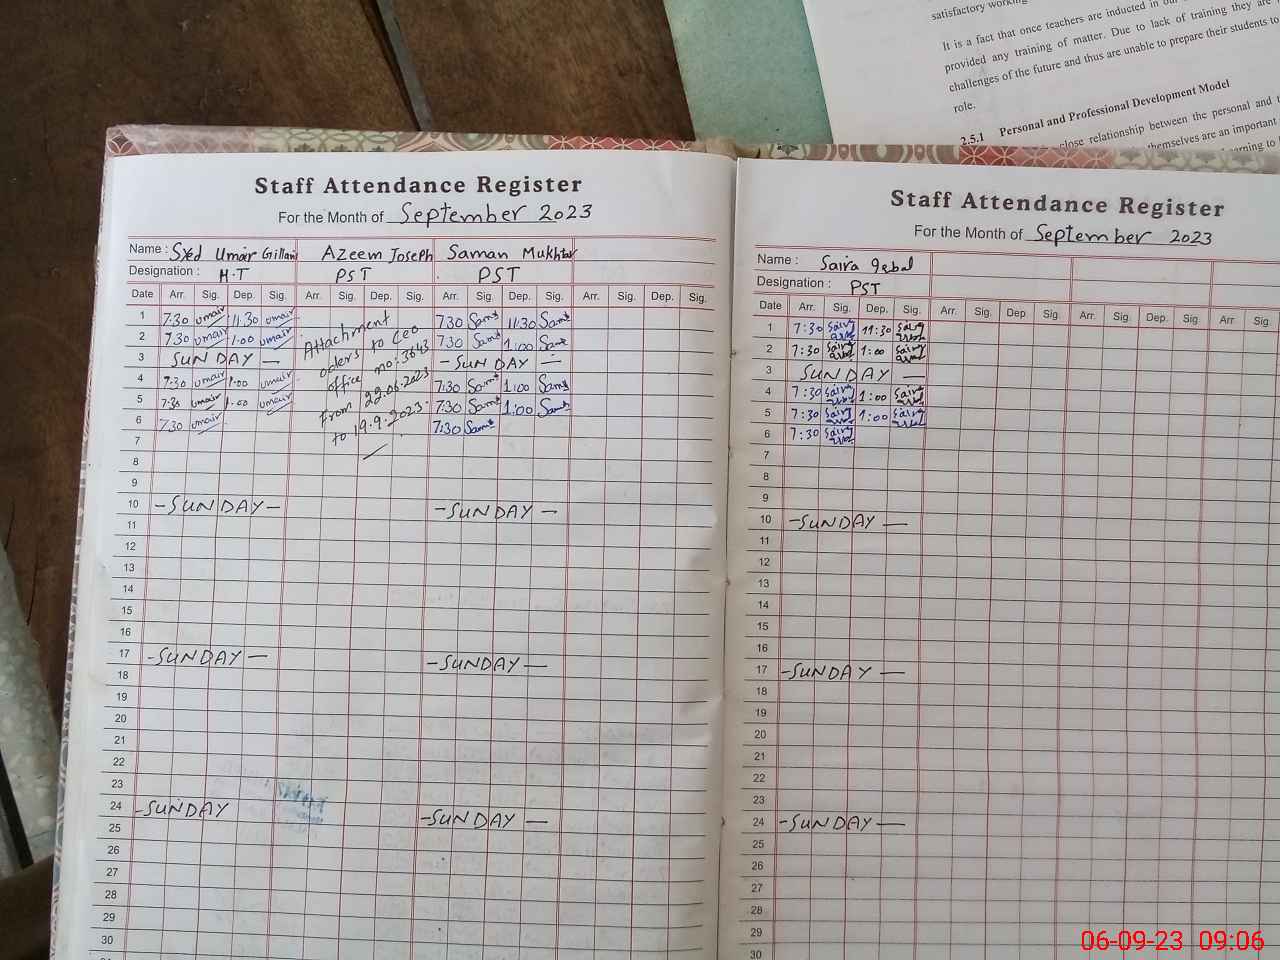 satisfactory working
It is a fact that once teachers are inducted in our
provided any training of matter. Due to lack of training they are
challenges of the future and thus are unable to prepare their students to
role.
2.5.1 Personal and Professional Development Model
close relationship between the personal and
themselves are an important
Staff Attendance Register
For the Month of September 2023
Name : Syed Umair Gillani Azeem Joseph Saman Mukhtar
Designation : H.T PST PST
Date Arr. Sig. Dep. Sig. Arr. Sig. Dep. Sig. Arr. Sig. Dep. Sig. Arr. Sig. Dep. Sig.
1 7:30 umair 11:30 umair 7:30 Sam 11:30 Sam
2 7:30 umair 1:00 umair 7:30 Sam 1:00 Sam
3 SUNDAY — — SUNDAY —
4 7:30 umair 1:00 umair 7:30 Sam 1:00 Sam
5 7:30 umair 1:00 umair 7:30 Sam 1:00 Sam
6 7:30 umair 7:30 Sam
Attachment
oders to Ceo
office no: 3643
From 22.06.2023
to 19.9.2023.
7
8
9
10 - SUNDAY - - SUNDAY —
11
12
13
14
15
16
17 - SUNDAY — - SUNDAY —
18
19
20
21
22
23
24 - SUNDAY - SUNDAY —
25
26
27
28
29
30
Staff Attendance Register
For the Month of September 2023
Name : Saira Iqbal
Designation : PST
Date Arr. Sig. Dep. Sig. Arr. Sig. Dep Sig. Arr. Sig. Dep. Sig. Arr Sig
1 7:30 Saira 11:30 Saira
2 7:30 Saira 1:00 Saira
3 SUNDAY —
4 7:30 Saira 1:00 Saira
5 7:30 Saira 1:00 Saira
6 7:30 Saira
7
8
9
10 - SUNDAY —
11
12
13
14
15
16
17 - SUNDAY —
18
19
20
21
22
23
24 - SUNDAY —
25
26
27
28
29
30
06-09-23 09:06